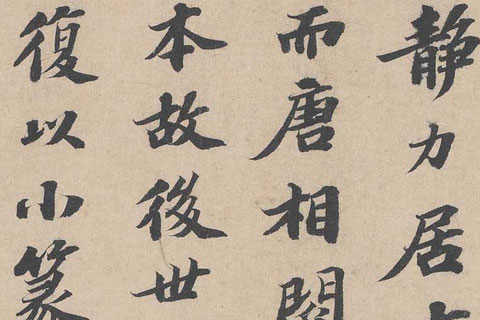 静力居
而唐相閱
本故後世
復以小篆